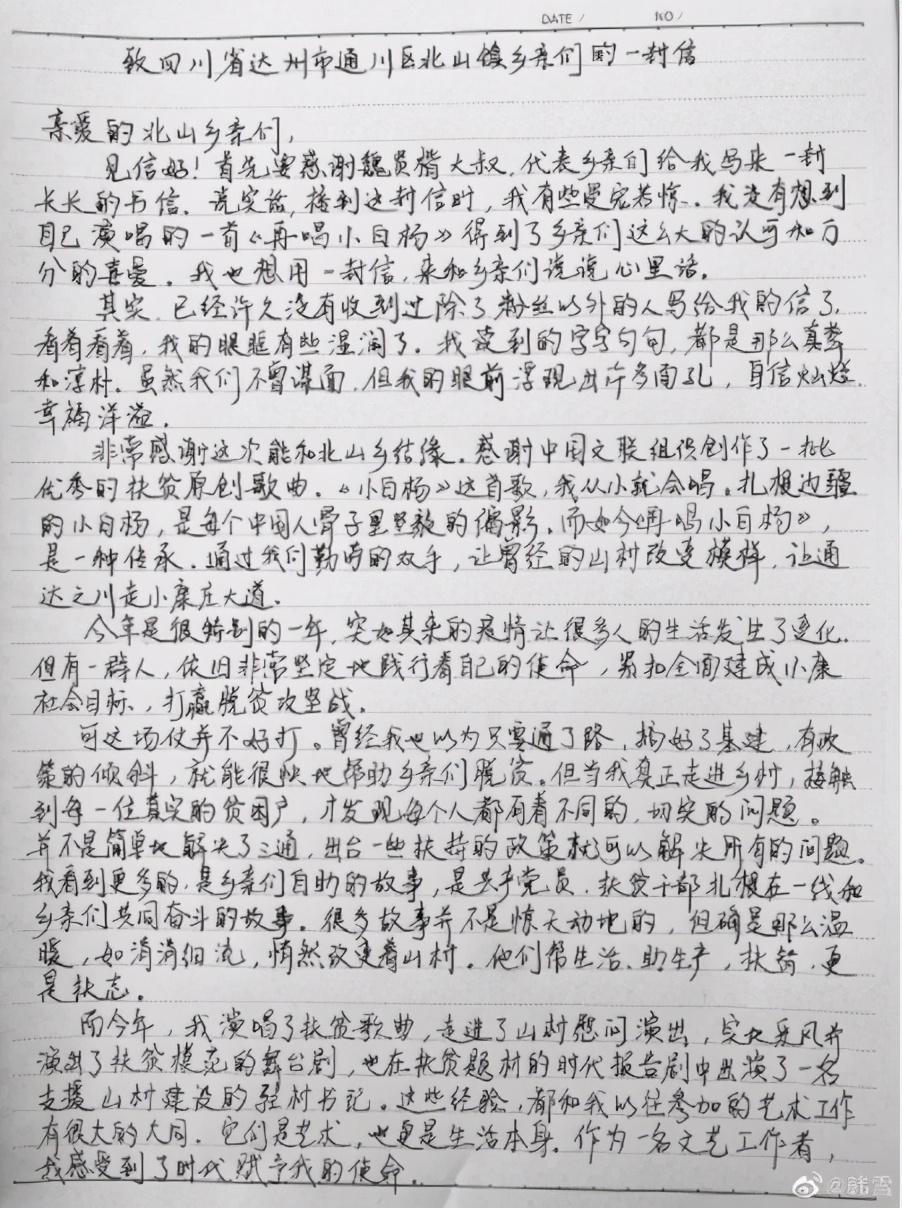 DATE / NO /
致四川省达州市通川区北山镇乡亲们的一封信
亲爱的北山乡亲们,
见信好!首先要感谢魏员楷大叔,代表乡亲们给我写来一封
长长的书信。说实话,接到这封信时,我有些受宠若惊。我没有想到
自己演唱的一首《再唱小白杨》得到了乡亲们这么大的认可和万
分的喜爱。我也想用一封信,来和乡亲们说说心里话。
其实,已经许久没有收到过除了粉丝以外的人写给我的信了,
看着看着,我的眼眶有些湿润了。我读到的字字句句,都是那么真挚
和淳朴。虽然我们不曾谋面,但我的眼前浮现出许多面孔,自信灿烂,
幸福洋溢。
非常感谢这次能和北山乡结缘。感谢中国文联组织创作了一批
优秀的扶贫原创歌曲。《小白杨》这首歌,我从小就会唱。扎根边疆
的小白杨,是每个中国人骨子里坚毅的缩影。而如今《再唱小白杨》,
是一种传承。通过我们勤劳的双手,让曾经的山村改变模样,让通
达之川走小康庄大道。
今年是很特别的一年,突如其来的疫情让很多人的生活发生了变化。
但有一群人,依旧非常坚定地践行着自己的使命,紧扣全面建成小康
社会目标,打赢脱贫攻坚战。
可这场仗并不好打。曾经我也以为只要通了路,搞好了基建,有政
策的倾斜,就能很快地帮助乡亲们脱贫。但当我真正走进乡村,接触
到每一位真实的贫困户,才发现每个人都有着不同的,切实的问题。
并不是简单地解决了三通,出台一些扶持的政策就可以解决所有的问题。
我看到更多的,是乡亲们自助的故事,是共产党员、扶贫干部扎根在一线和
乡亲们共同奋斗的故事。很多故事并不是惊天动地的,但确是那么温
暖,如涓涓细流,悄然改变着山村。他们帮生活、助生产,扶智,更
是扶志。
而今年,我演唱了扶贫歌曲,走进了山村慰问演出,实地采风并
演出了扶贫模范的舞台剧,也在扶贫题材的时代报告剧中出演了一名
支援山村建设的驻村书记。这些经验,都和我以往参加的艺术工作
有很大的大同。它们是艺术,也更是生活本身。作为一名文艺工作者,
我感受到了时代赋予我的使命。
@韩雪